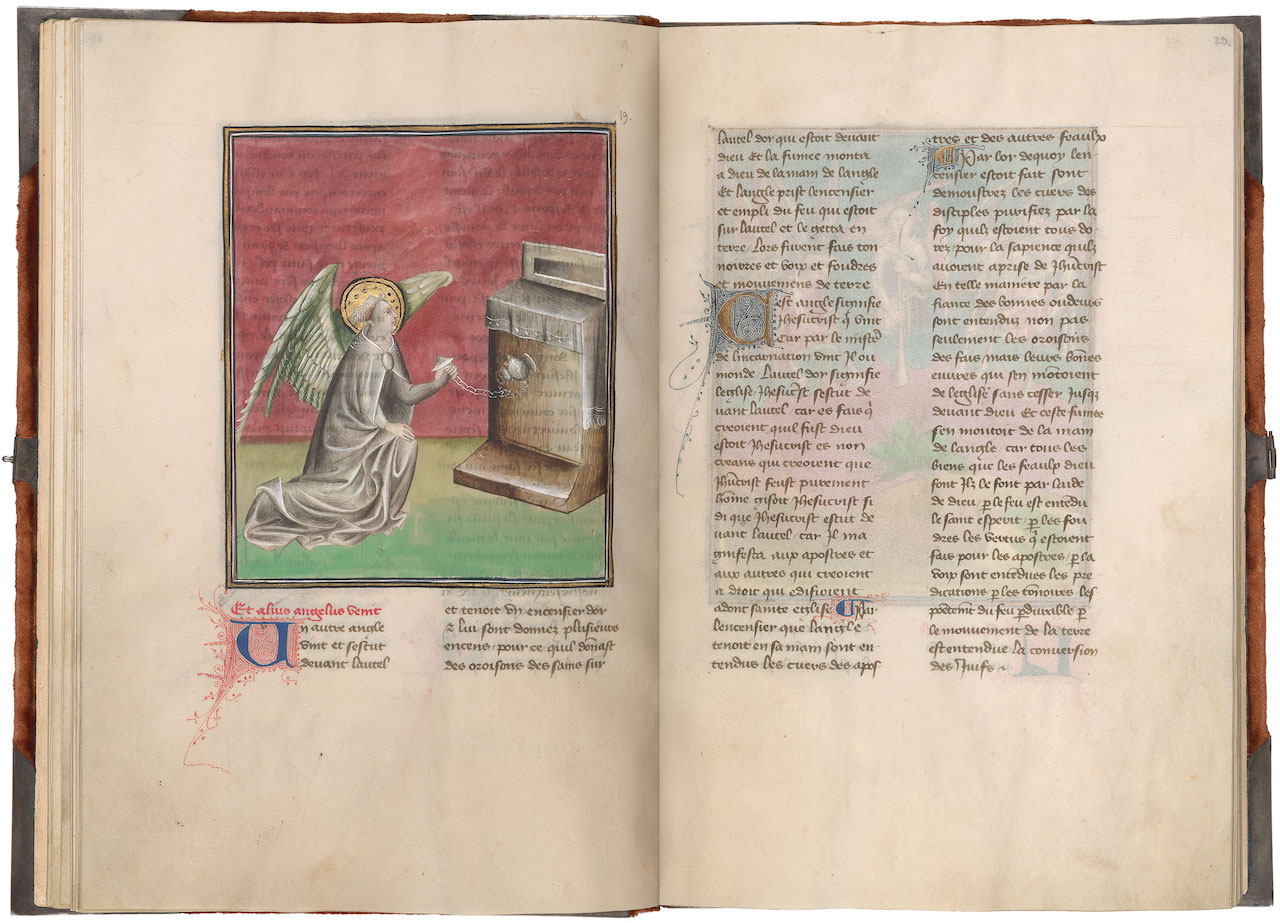 19.
Et alius angelus venit
Un autre angle
vint et sestut
devant lautel
et tenoit vn encensier dor
z lui sont donnez plusieurs
encens / pour ce quil donast
des oroisons des sains sur
20.
lautel dor qui estoit deuant
dieu Et la fumee monta
a dieu de la main de langle
Et langle prist lencensier
et empli du feu qui estoit
sur lautel et le getta en
terre / Lors furent fais ton
noirres et voix et foudres
et mouuemens de terre
Cest angle signifie
Jhesucrist q̄ vint
Car par le mistē
de lincarnation vint Jl ou
monde Lautel dor signifie
leglise / Jhesucrist sestut de
uant lautel car es fais q̄
creoient quil fust dieu
estoit Jhesucrist es non
creans qui creoient que
Jhūcrist feust purement
hōme gisoit Jhesucrist si
di que Jhesucrist estut de
uant lautel / car Jl ma
gnifesta aux apostres et
aux autres qui creoient
a droit qui edifioient
adont sainte eglise Par
lencensier que langle
tenoit en sa main sont en
tendus les cuers des apos
tres et des autres feaulx
Par lor dequoy len
censier estoit fait sont
demoustrez les cuers des
disciples purifiez par la
foy quilz estoient tous do
rez pour la sapience quilz
auoient aprise de Jhūcrist
En telle maniere par la
fiance des bonnes oudeurs
sont entenduz non pas
seulement les oroisons
des fais / mais leurs bōnes
euures qui sen mōtoient
de leglise sans cesser Jusqz
deuant dieu Et ceste fumee
sen montoit de la main
de langle car tous les
biens que les feaulx dieu
font Jlz le font par laide
de dieu / ꝑ le feu est entēdu
le saint esperit / ꝑ les fou
dres les vertus q̄ estoient
fais pour les apostres / ꝑ la
voix sont entēdues les pre
dications / ꝑ les tōnoires / les
du feu ꝑdurable ꝑ
le mouuement de la terre
est entendue la conuersion
des Juifs